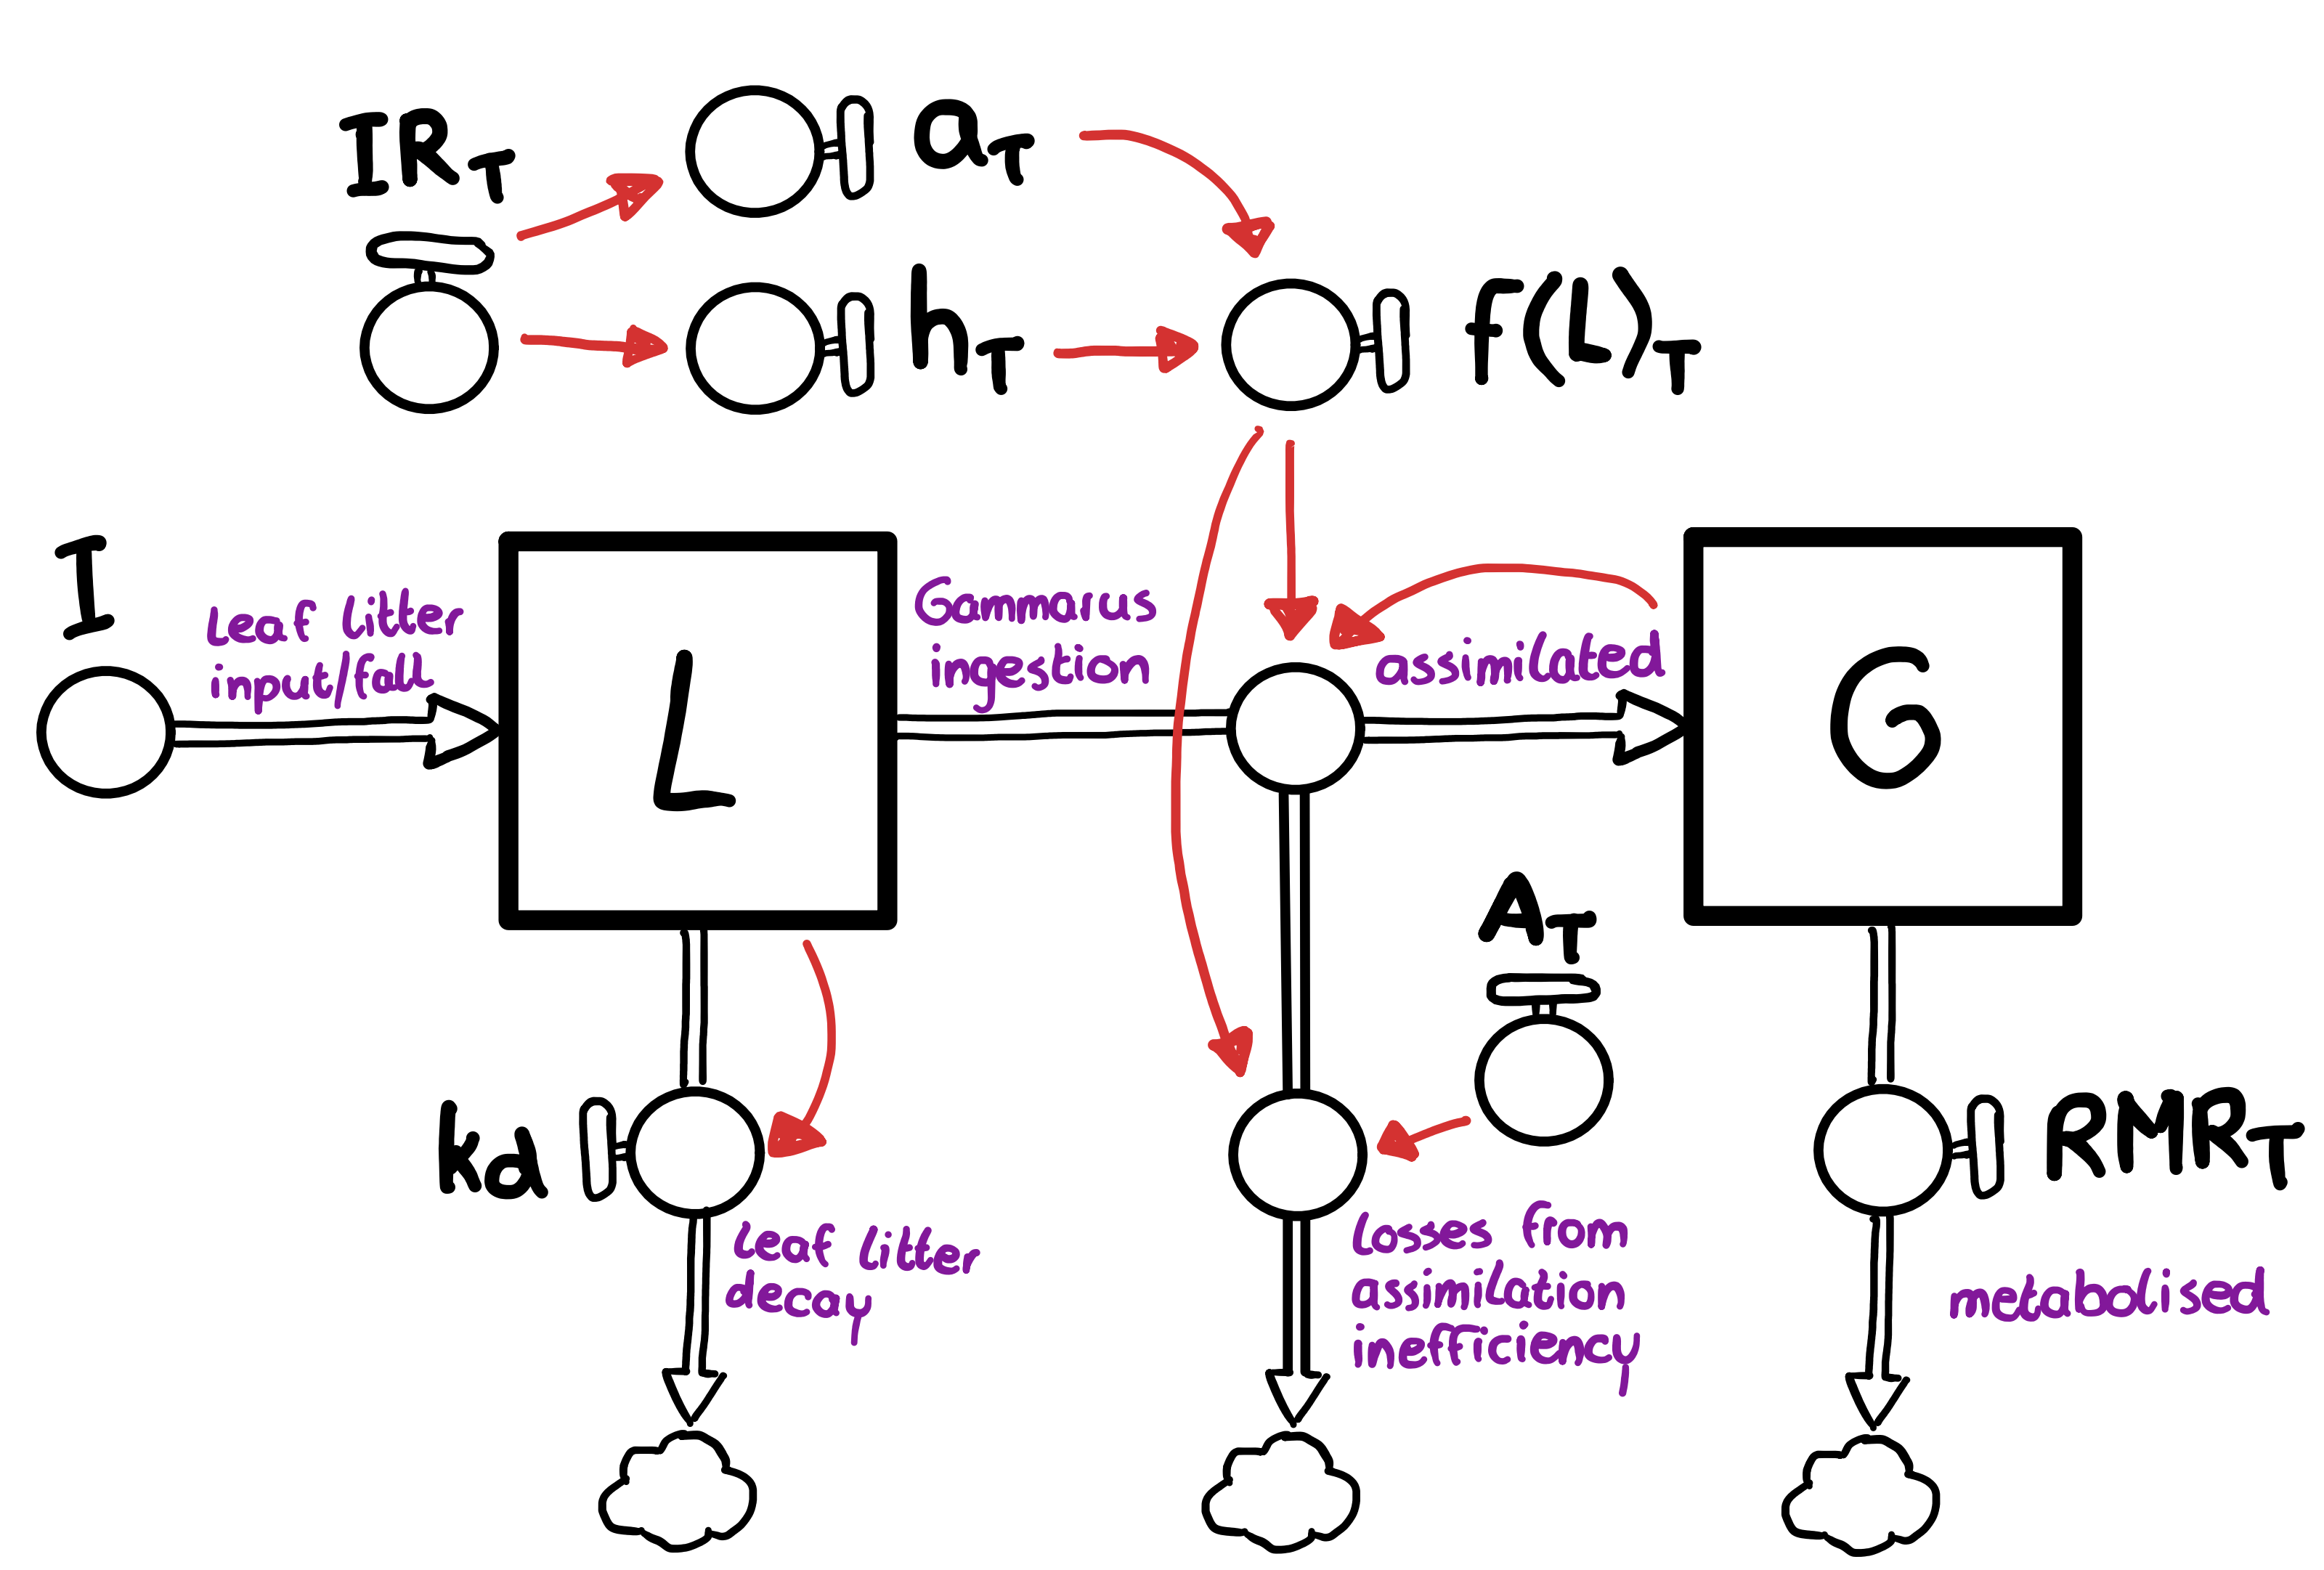 IR_T
a_T
h_T
f(L)_T
I
Leaf litter
input/fall
L
Gammarus
ingestion
assimilated
G
A_T
kd
RMR_T
Leaf litter
decay
losses from
assimilation
inefficiency
metabolised